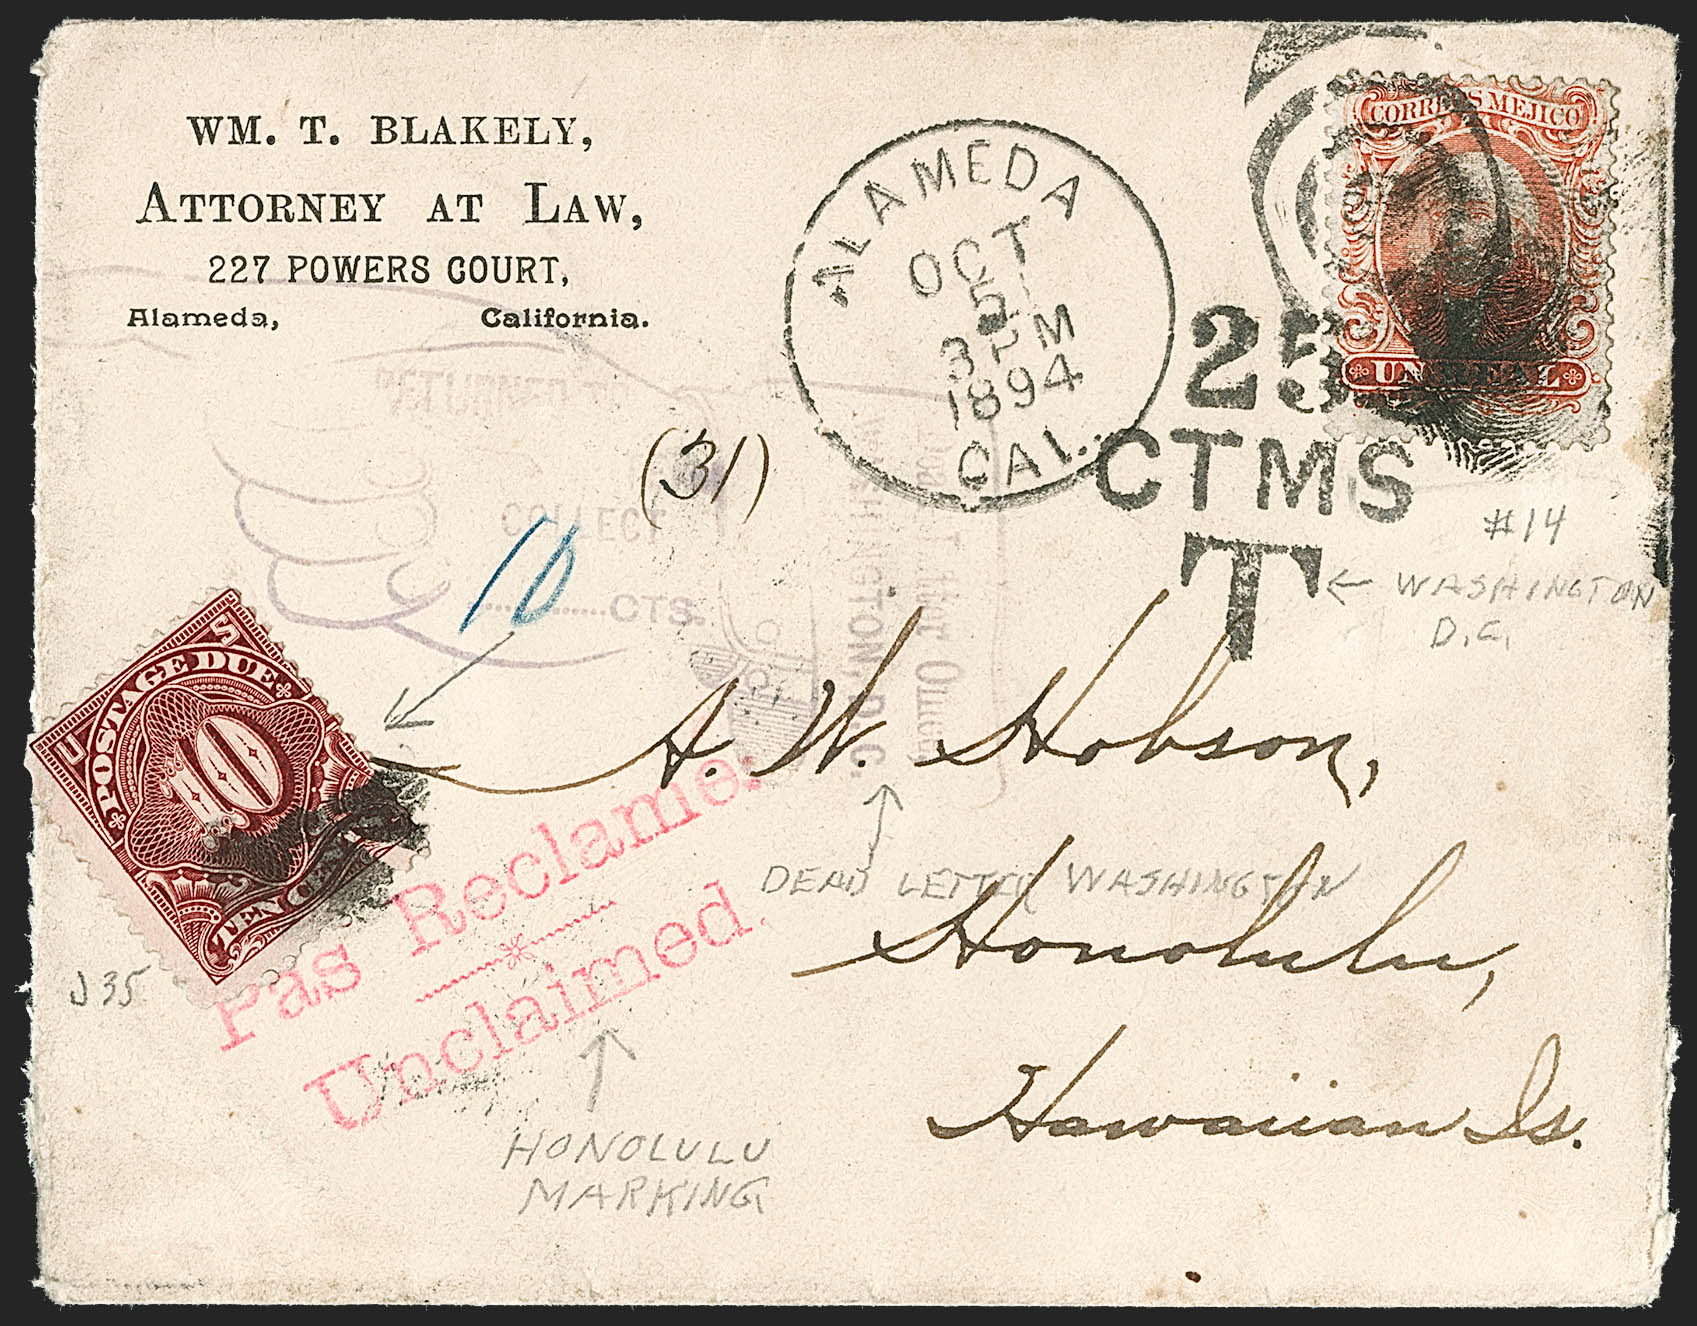 WM. T. BLAKELY,
ATTORNEY AT LAW,
227 POWERS COURT,
Alameda, California.
ALAMEDA
OCT
5
3 PM
1894
CAL.
CORREOS MEJICO
UN REAL
25
CTMS
T
#14
← WASHINGTON
D.C.
(31)
10
RETURNED TO
COLLECT
CTS.
Dead Letter Office
WASHINGTON, D.C.
U S
POSTAGE DUE
10
TEN CENTS
J35
A. W. Hobson,
Honolulu,
Hawaiian Is.
DEAD LETTER WASHINGTON
Pas Reclame.
Unclaimed.
HONOLULU
MARKING